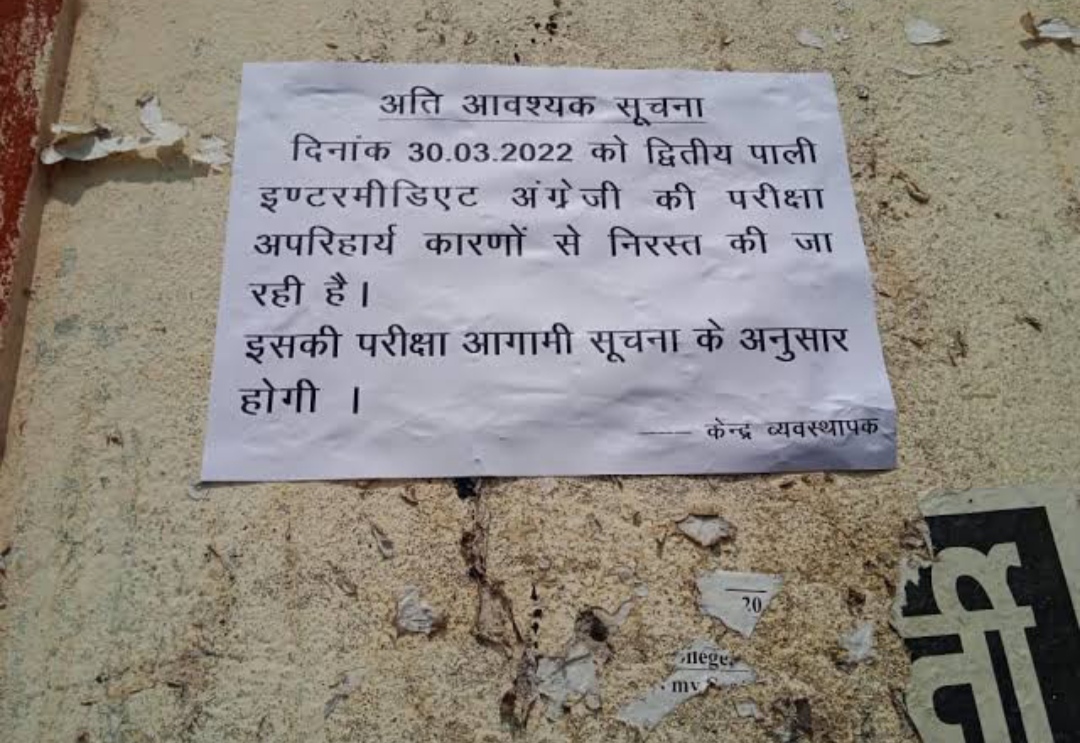 अति आवश्यक सूचना
दिनांक 30.03.2022 को द्वितीय पाली
इण्टरमीडिएट अंग्रेजी की परीक्षा
अपरिहार्य कारणों से निरस्त की जा
रही है।
इसकी परीक्षा आगामी सूचना के अनुसार
होगी ।
—— केन्द्र व्यवस्थापक
20
my
ती